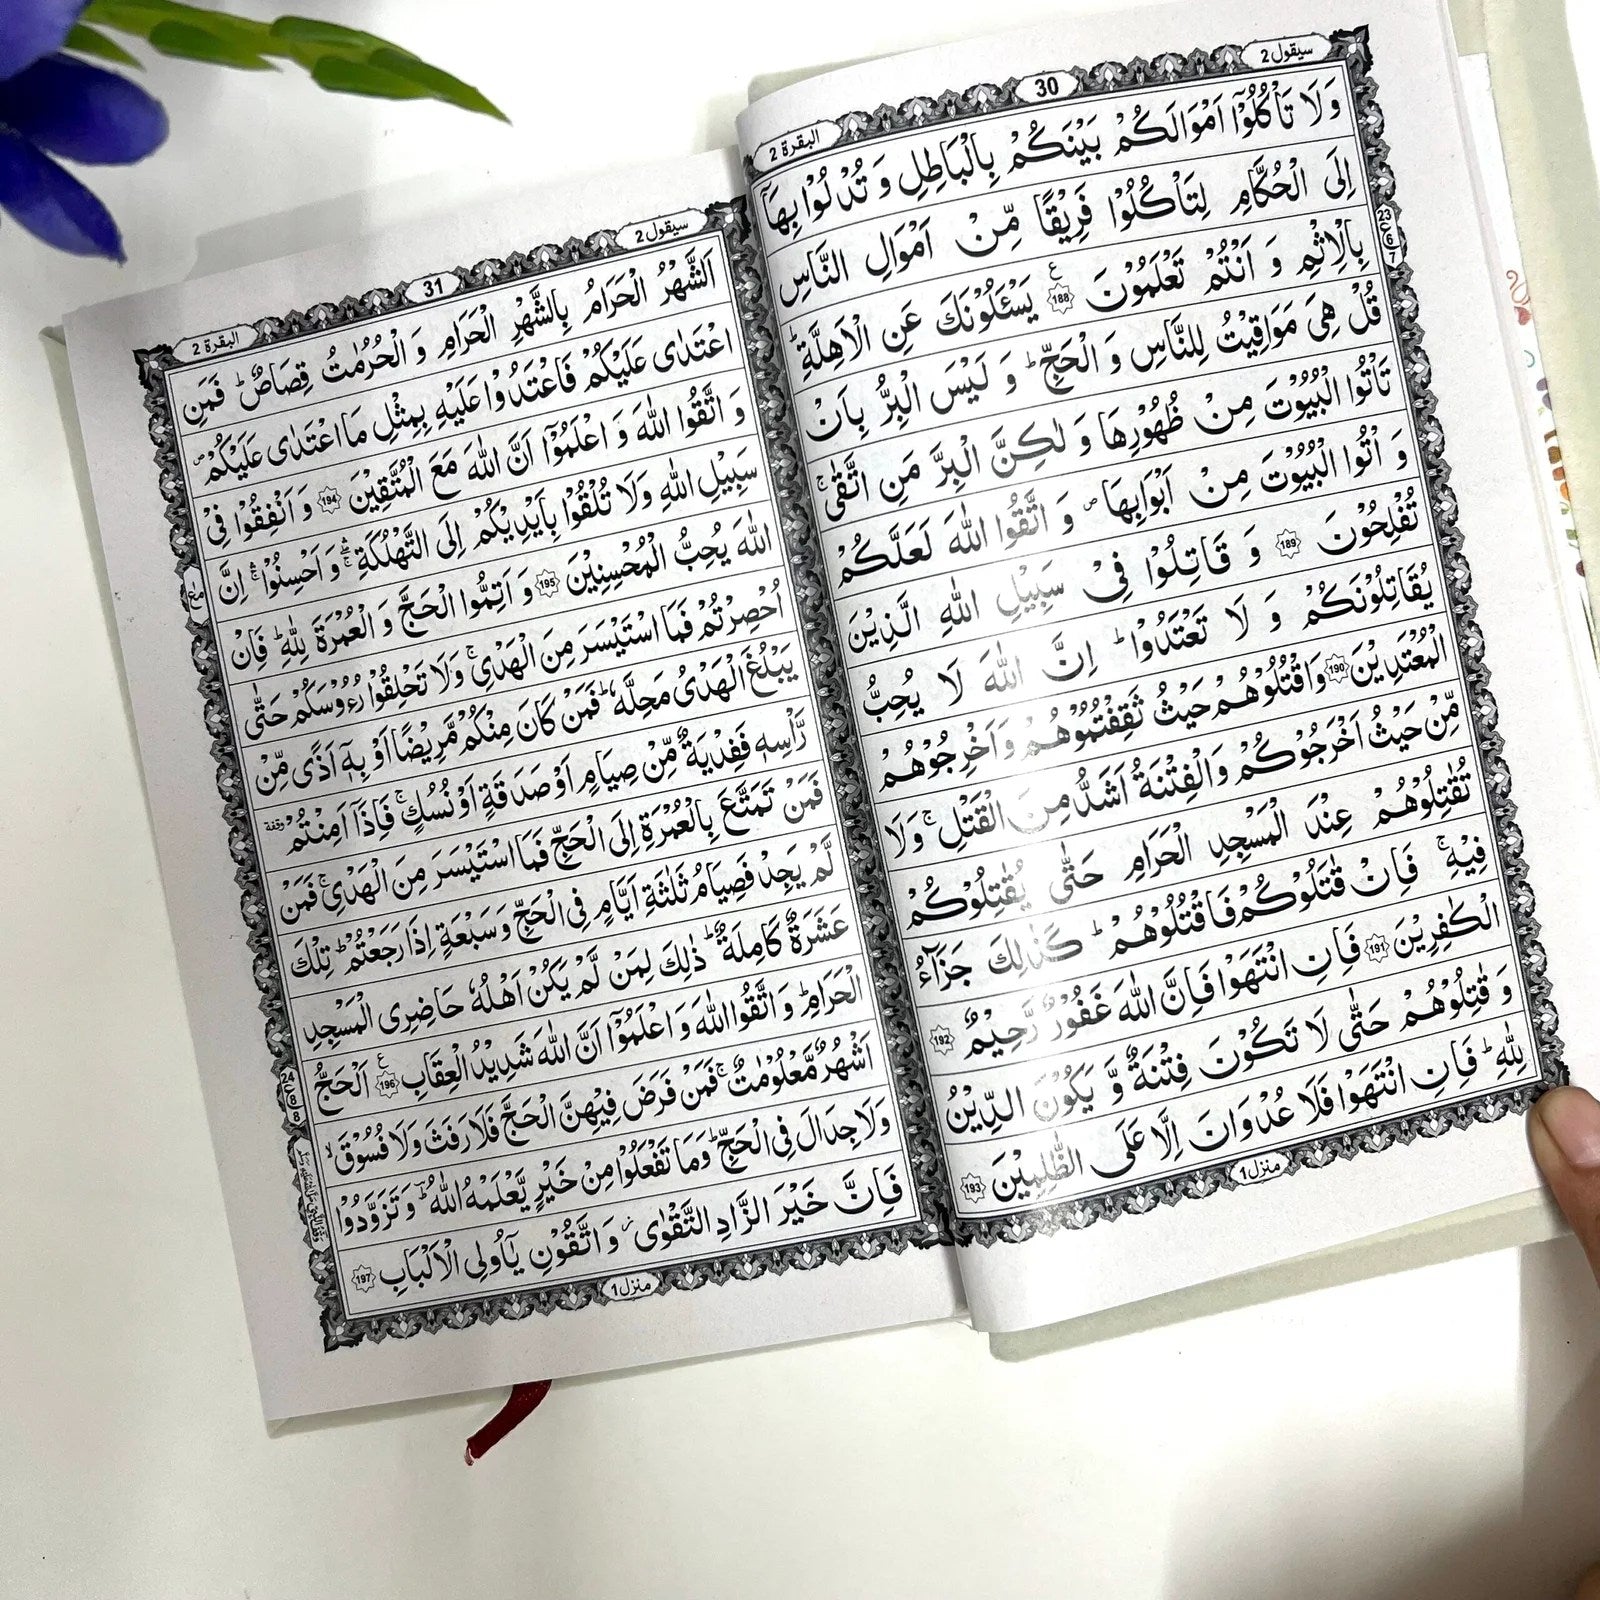 سیقول 2
30
البقرة 2
وَلَا تَاْكُلُوْۤا اَمْوَالَكُمْ بَیْنَكُمْ بِالْبَاطِلِ وَ تُدْلُوْا بِهَاۤ
اِلَى الْحُكَّامِ لِتَاْكُلُوْا فَرِیْقًا مِّنْ اَمْوَالِ النَّاسِ
بِالْاِثْمِ وَ اَنْتُمْ تَعْلَمُوْنَ 188 ع یَسْـَٔلُوْنَكَ عَنِ الْاَهِلَّةِ ؕ
قُلْ هِیَ مَوَاقِیْتُ لِلنَّاسِ وَ الْحَجِّ ؕ وَ لَیْسَ الْبِرُّ بِاَنْ
تَاْتُوا الْبُیُوْتَ مِنْ ظُهُوْرِهَا وَ لٰكِنَّ الْبِرَّ مَنِ اتَّقٰى ۚ
وَ اْتُوا الْبُیُوْتَ مِنْ اَبْوَابِهَا ۪ وَ اتَّقُوا اللّٰهَ لَعَلَّكُمْ
تُفْلِحُوْنَ 189 وَ قَاتِلُوْا فِیْ سَبِیْلِ اللّٰهِ الَّذِیْنَ
یُقَاتِلُوْنَكُمْ وَ لَا تَعْتَدُوْا ؕ اِنَّ اللّٰهَ لَا یُحِبُّ
الْمُعْتَدِیْنَ 190 وَاقْتُلُوْهُمْ حَیْثُ ثَقِفْتُمُوْهُمْ وَاَخْرِجُوْهُمْ
مِّنْ حَیْثُ اَخْرَجُوْكُمْ وَالْفِتْنَةُ اَشَدُّ مِنَ الْقَتْلِ ۚ وَلَا
تُقٰتِلُوْهُمْ عِنْدَ الْمَسْجِدِ الْحَرَامِ حَتّٰى یُقٰتِلُوْكُمْ
فِیْهِ ۚ فَاِنْ قٰتَلُوْكُمْ فَاقْتُلُوْهُمْ ؕ كَذٰلِكَ جَزَآءُ
الْكٰفِرِیْنَ 191 فَاِنِ انْتَهَوْا فَاِنَّ اللّٰهَ غَفُوْرٌ رَّحِیْمٌ 192
وَ قٰتِلُوْهُمْ حَتّٰى لَا تَكُوْنَ فِتْنَةٌ وَّ یَكُوْنَ الدِّیْنُ
لِلّٰهِ ؕ فَاِنِ انْتَهَوْا فَلَا عُدْوَانَ اِلَّا عَلَى الظّٰلِمِیْنَ 193
منزل 1
23
6
7
سیقول 2
31
البقرة 2
اَلشَّهْرُ الْحَرَامُ بِالشَّهْرِ الْحَرَامِ وَ الْحُرُمٰتُ قِصَاصٌ ؕ فَمَنِ
اعْتَدٰى عَلَیْكُمْ فَاعْتَدُوْا عَلَیْهِ بِمِثْلِ مَا اعْتَدٰى عَلَیْكُمْ ۪
وَ اتَّقُوا اللّٰهَ وَ اعْلَمُوْۤا اَنَّ اللّٰهَ مَعَ الْمُتَّقِیْنَ 194 وَ اَنْفِقُوْا فِیْ
سَبِیْلِ اللّٰهِ وَلَا تُلْقُوْا بِاَیْدِیْكُمْ اِلَى التَّهْلُكَةِ ۛۚ وَ اَحْسِنُوْا ۛۚ اِنَّ
اللّٰهَ یُحِبُّ الْمُحْسِنِیْنَ 195 وَ اَتِمُّوا الْحَجَّ وَ الْعُمْرَةَ لِلّٰهِ ؕ فَاِنْ
اُحْصِرْتُمْ فَمَا اسْتَیْسَرَ مِنَ الْهَدْیِ ۚ وَلَا تَحْلِقُوْا رُءُوْسَكُمْ حَتّٰى
یَبْلُغَ الْهَدْیُ مَحِلَّهٗ ؕ فَمَنْ كَانَ مِنْكُمْ مَّرِیْضًا اَوْ بِهٖۤ اَذًى مِّنْ
رَّاْسِهٖ فَفِدْیَةٌ مِّنْ صِیَامٍ اَوْ صَدَقَةٍ اَوْ نُسُكٍ ۚ فَاِذَاۤ اَمِنْتُمْ وقفة
فَمَنْ تَمَتَّعَ بِالْعُمْرَةِ اِلَى الْحَجِّ فَمَا اسْتَیْسَرَ مِنَ الْهَدْیِ ۚ فَمَنْ
لَّمْ یَجِدْ فَصِیَامُ ثَلٰثَةِ اَیَّامٍ فِی الْحَجِّ وَ سَبْعَةٍ اِذَا رَجَعْتُمْ ؕ تِلْكَ
عَشَرَةٌ كَامِلَةٌ ؕ ذٰلِكَ لِمَنْ لَّمْ یَكُنْ اَهْلُهٗ حَاضِرِی الْمَسْجِدِ
الْحَرَامِ ؕ وَ اتَّقُوا اللّٰهَ وَ اعْلَمُوْۤا اَنَّ اللّٰهَ شَدِیْدُ الْعِقَابِ 196 ع اَلْحَجُّ
اَشْهُرٌ مَّعْلُوْمٰتٌ ۚ فَمَنْ فَرَضَ فِیْهِنَّ الْحَجَّ فَلَا رَفَثَ وَلَا فُسُوْقَ ۙ
وَلَا جِدَالَ فِی الْحَجِّ ؕ وَمَا تَفْعَلُوْا مِنْ خَیْرٍ یَّعْلَمْهُ اللّٰهُ ؔؕ وَ تَزَوَّدُوْا
فَاِنَّ خَیْرَ الزَّادِ التَّقْوٰى ؗ وَ اتَّقُوْنِ یٰۤاُولِی الْاَلْبَابِ 197
منزل 1
مع
24
8
8